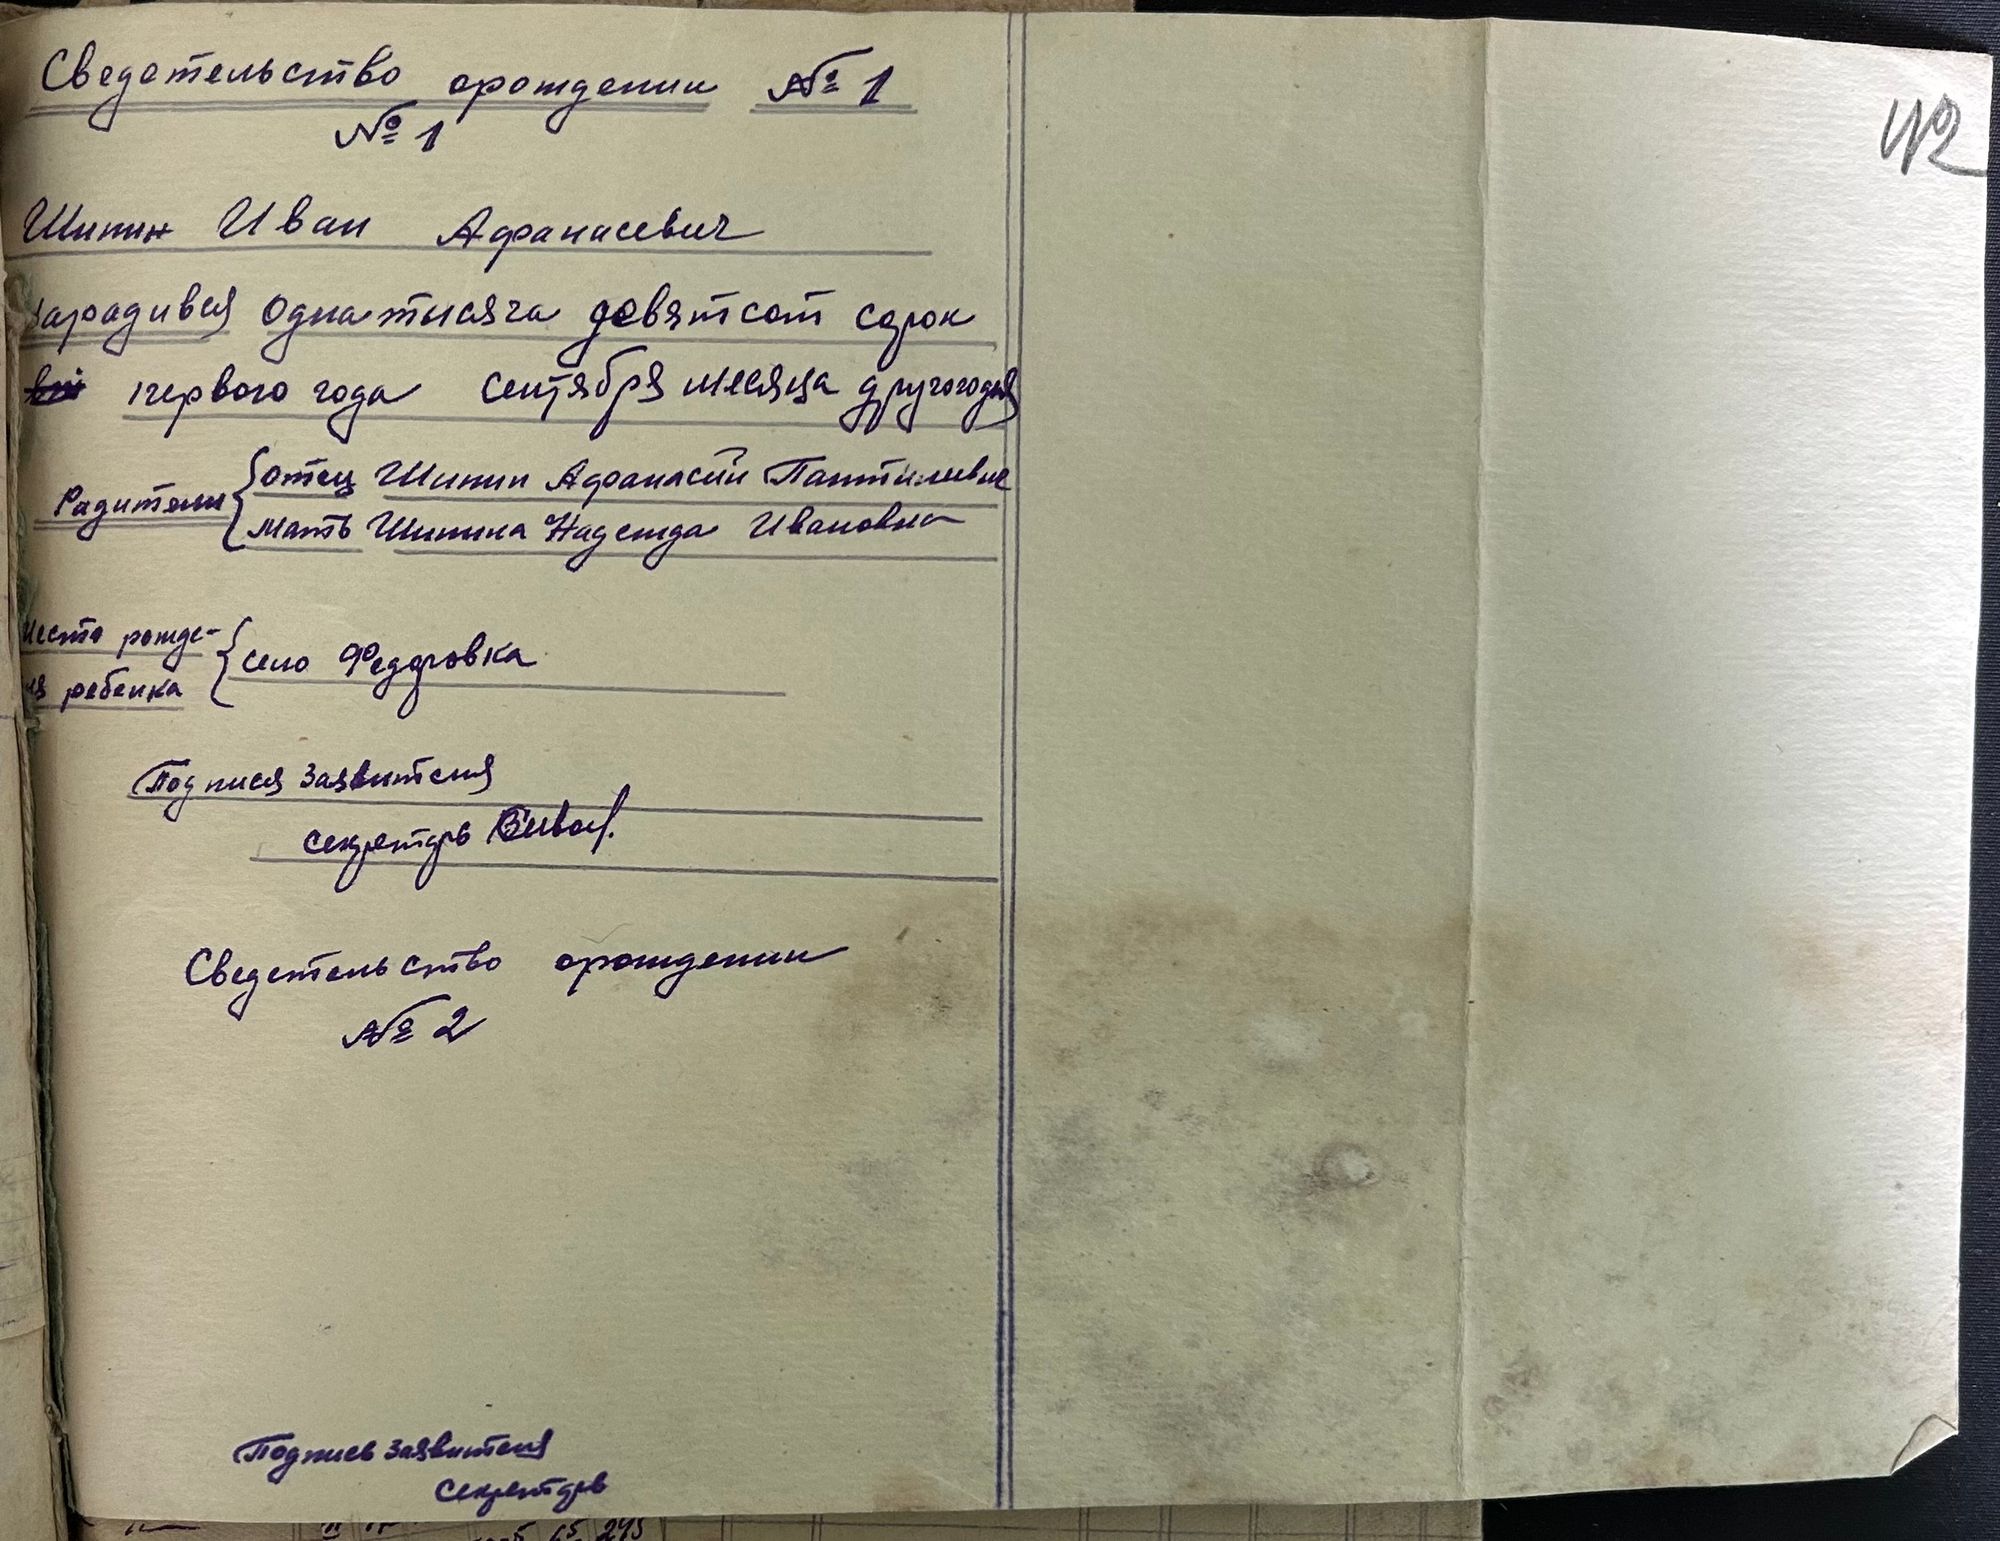 Сведетельство орождении № 1
№ 1
42
Шипин Иван Афанасевич
зарадився одна тысяча девятсот сорок
первого года сентября месяца другогодня
Радители { отец Шипин Афанасий Пантилевич
мать Шипина Надежда Ивановна
Место рожде-
ия ребенка { село Федоровка
Подпися заявителя
секретарь
Сведетельство орождении
№ 2
Подпись заявителя
секретарь
245